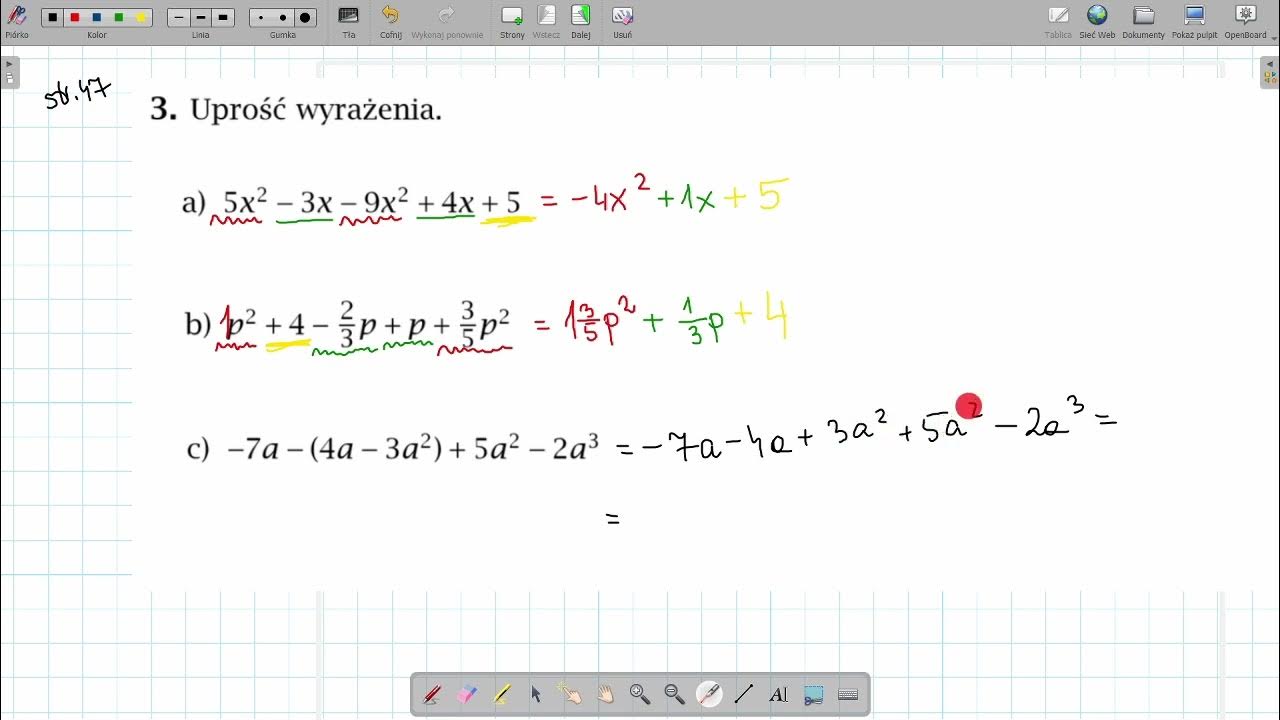 Piórko Kolor Linia Gumka Tła Cofnij Wykonaj ponownie Strony Wstecz Dalej Usuń Tablica Sieć Web Dokumenty Pokaż pulpit OpenBoard
str.47
3. Uprość wyrażenia.
a) 5x² − 3x − 9x² + 4x + 5 = −4x² + 1x + 5
b) 1p² + 4 − 2/3 p + p + 3/5 p² = 1 3/5 p² + 1/3 p + 4
c) −7a − (4a − 3a²) + 5a² − 2a³ = −7a − 4a + 3a² + 5a² − 2a³ =
=
AI